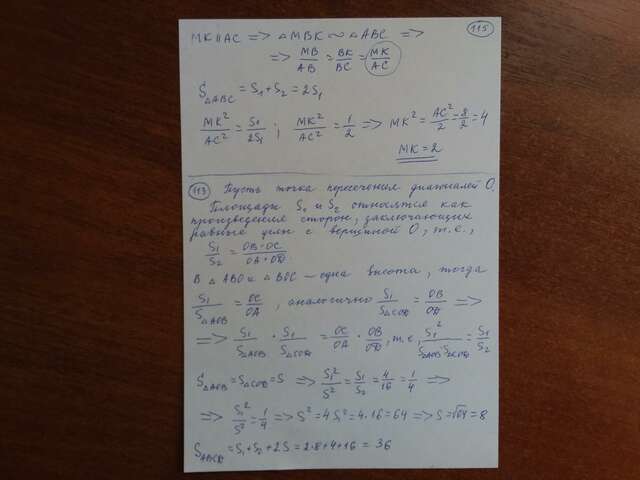 115
MK || AC => △MBK ∼ △ABC =>
=> MB/AB = BK/BC = MK/AC
S△ABC = S₁ + S₂ = 2S₁
MK²/AC² = S₁/2S₁ ; MK²/AC² = 1/2 => MK² = AC²/2 = 8/2 = 4
MK = 2
113 Пусть точка пересечения диагоналей O.
Площади S₁ и S₂ относятся как
произведения сторон, заключающих
равные углы с вершиной O, т.е.,
S₁/S₂ = OB·OC/OA·OD
В △ABO и △BOC – одна высота, тогда
S₁/S△AOB = OC/OA, аналогично S₁/S△COD = OB/OD =>
=> S₁/S△AOB · S₁/S△COD = OC/OA · OB/OD, т.е. S₁²/S△AOB·S△COD = S₁/S₂
S△AOB = S△COD = S => S₁²/S² = S₁/S₂ = 4/16 = 1/4 =>
=> S₁²/S² = 1/4 => S² = 4S₁² = 4·16 = 64 => S = √64 = 8
SABCD = S₁ + S₂ + 2S = 2·8 + 4 + 16 = 36